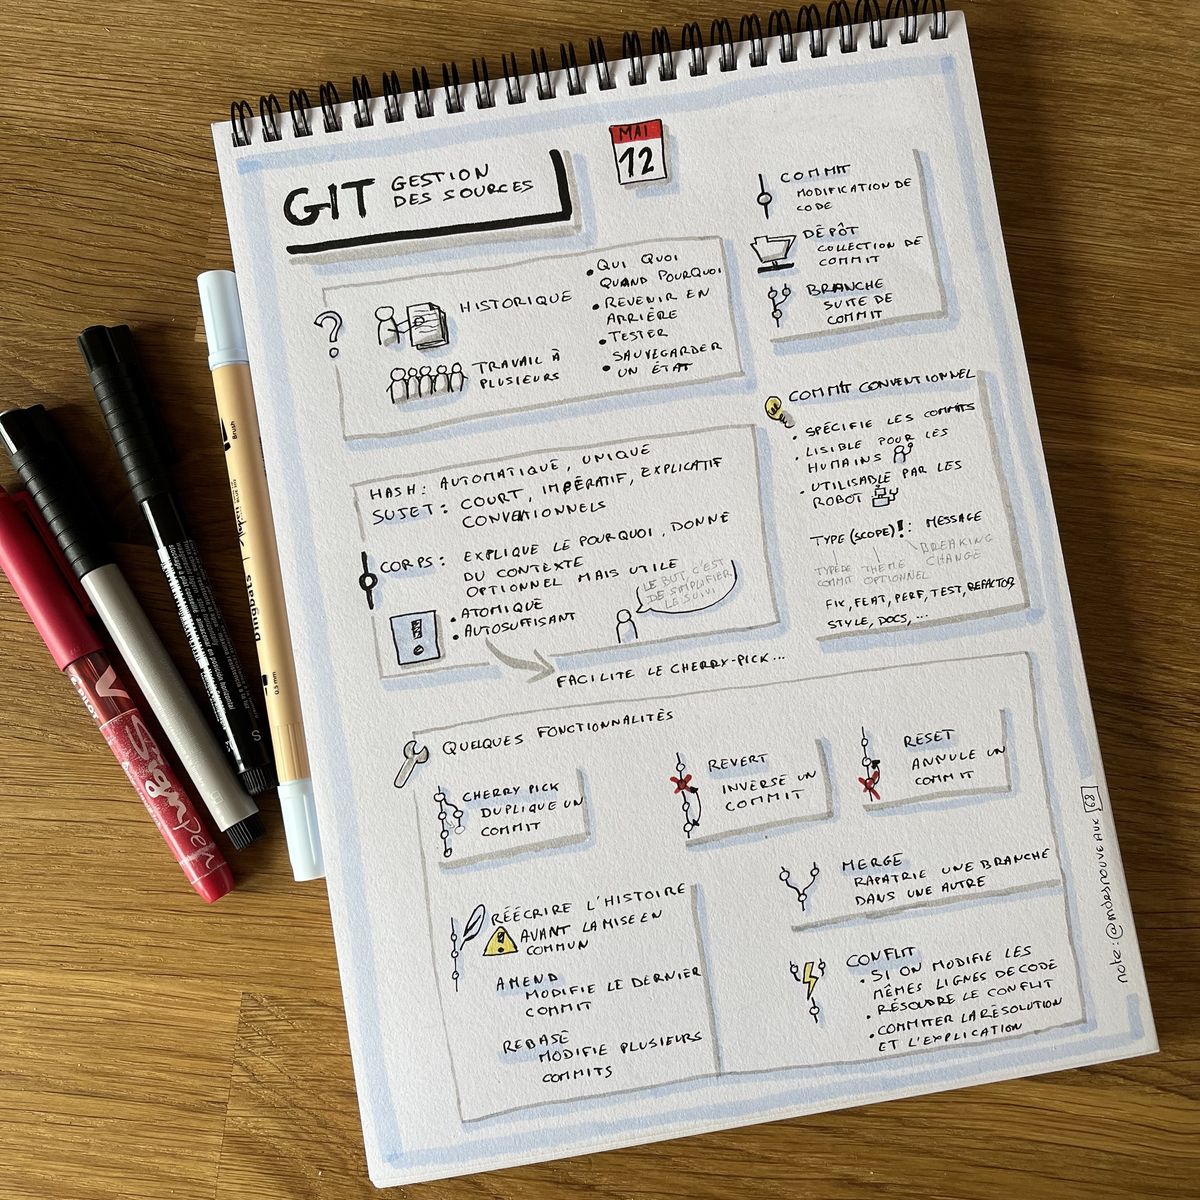 GIT GESTION
DES SOURCES
MAI
12
COMMIT
MODIFICATION DE
CODE
DÉPÔT
COLLECTION DE
COMMIT
BRANCHE
SUITE DE
COMMIT
?
HISTORIQUE
TRAVAIL À
PLUSIEURS
• QUI QUOI
QUAND POURQUOI
• REVENIR EN
ARRIÈRE
• TESTER
SAUVEGARDER
• UN ÉTAT
HASH : AUTOMATIQUE, UNIQUE
SUJET : COURT, IMPÉRATIF, EXPLICATIF
CONVENTIONNELS
CORPS : EXPLIQUE LE POURQUOI, DONNE
DU CONTEXTE
OPTIONNEL MAIS UTILE
• ATOMIQUE
• AUTOSUFFISANT
LE BUT C'EST
DE SIMPLIFIER
LE SUIVI
FACILITE LE CHERRY-PICK...
COMMIT CONVENTIONNEL
• SPÉCIFIE LES COMMITS
• LISIBLE POUR LES
HUMAINS
• UTILISABLE PAR LES
ROBOT
TYPE (SCOPE)! : MESSAGE
TYPE DE
COMMIT
THÈME
OPTIONNEL
BREAKING
CHANGE
FIX, FEAT, PERF, TEST, REFACTOR,
STYLE, DOCS, ...
QUELQUES FONCTIONNALITÉS
CHERRY PICK
DUPLIQUE UN
COMMIT
REVERT
INVERSE UN
COMMIT
RESET
ANNULE UN
COMMIT
RÉÉCRIRE L'HISTOIRE
! AVANT LA MISE EN
COMMUN
AMEND
MODIFIE LE DERNIER
COMMIT
REBASE
MODIFIE PLUSIEURS
COMMITS
MERGE
RAPATRIE UNE BRANCHE
DANS UNE AUTRE
CONFLIT
• SI ON MODIFIE LES
MÊMES LIGNES DE CODE
• RÉSOUDRE LE CONFLIT
• COMMITER LA RÉSOLUTION
ET L'EXPLICATION
note : @mdesnouveaux 68
PILOT
V
Sign Pen
S
Brush
Dingbats
0.5 mm